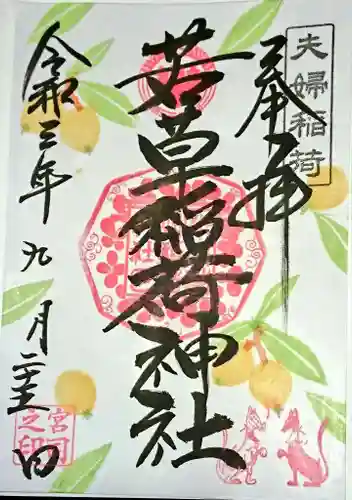 夫婦稲荷
奉拝
若草稲荷神社
令和三年九月二十五日
宮司之印